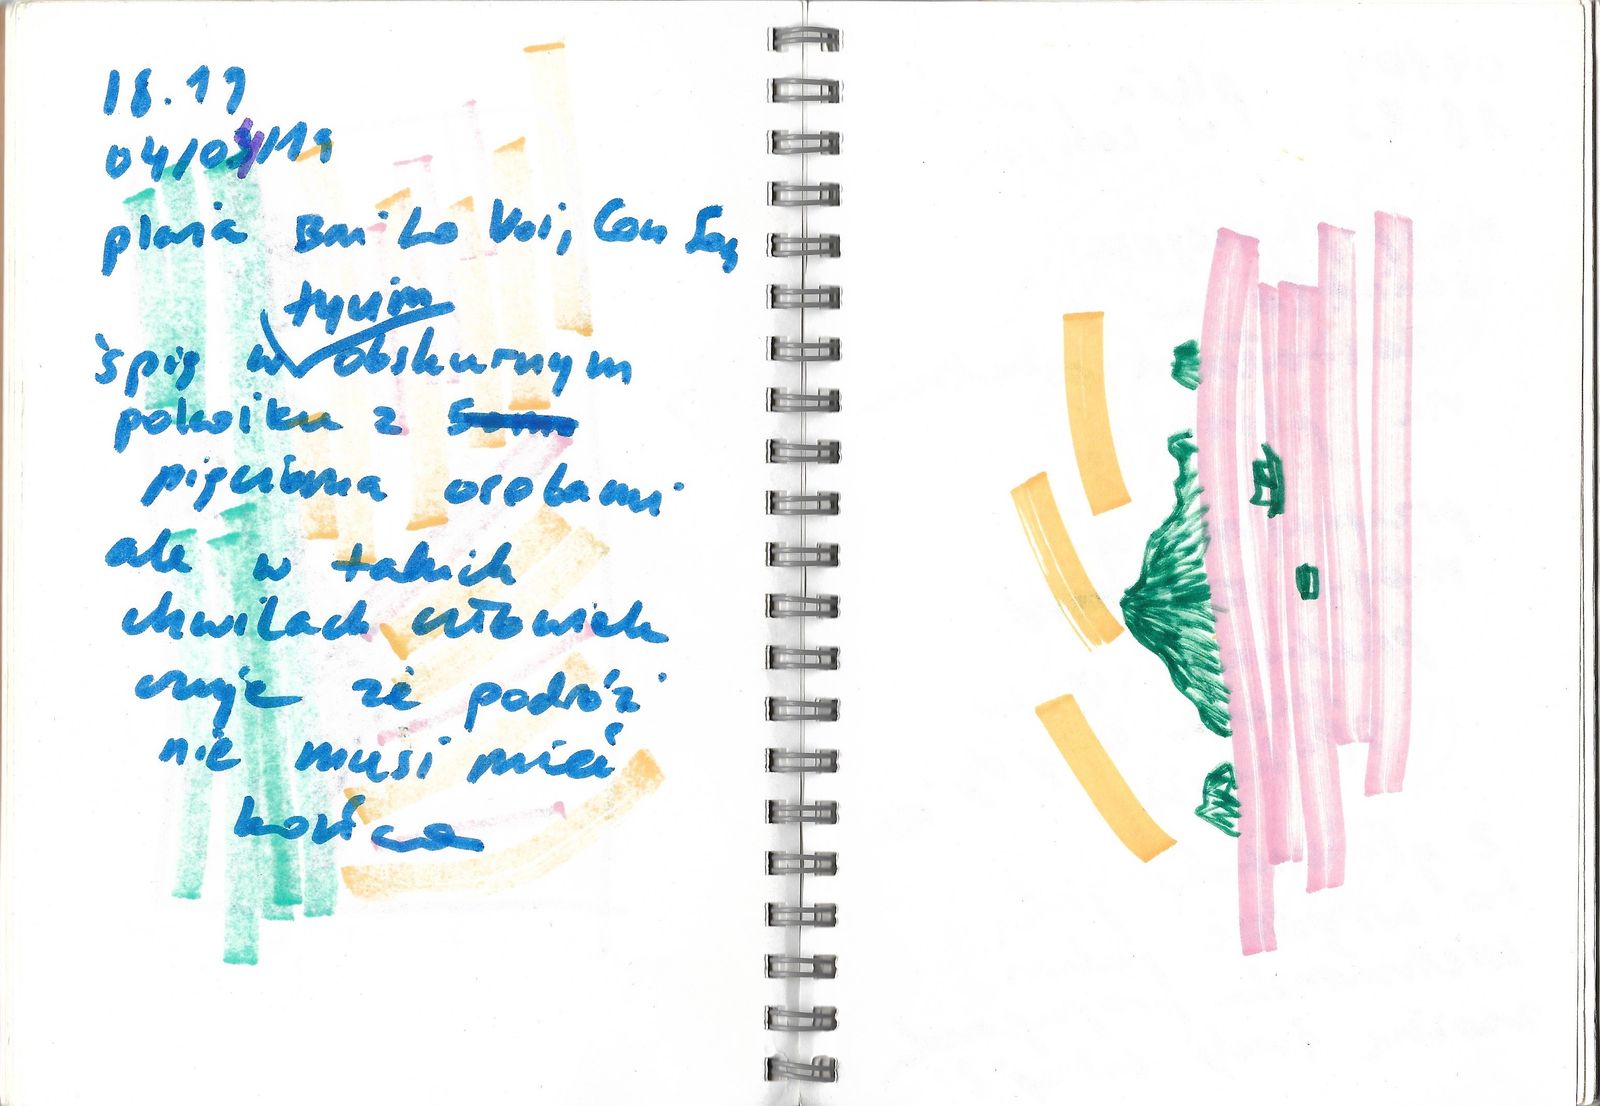 18.19
04/04/19
plaża Bai Lo Voi, Con Son
tycim
śpię w obskurnym
pokoiku z
pięcioma osobami
ale w takich
chwilach człowiek
czuje że podróż
nie musi mieć
końca